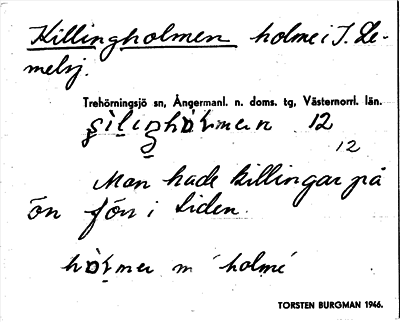 Killingholmen holme i S. Le-
melsj.
Trehörningsjö sn, Ångermanl. n. doms. tg, Västernorrl. län.
12
12
Man hade killingar på
ön förr i tiden.
m 'holme'
TORSTEN BURGMAN 1946.